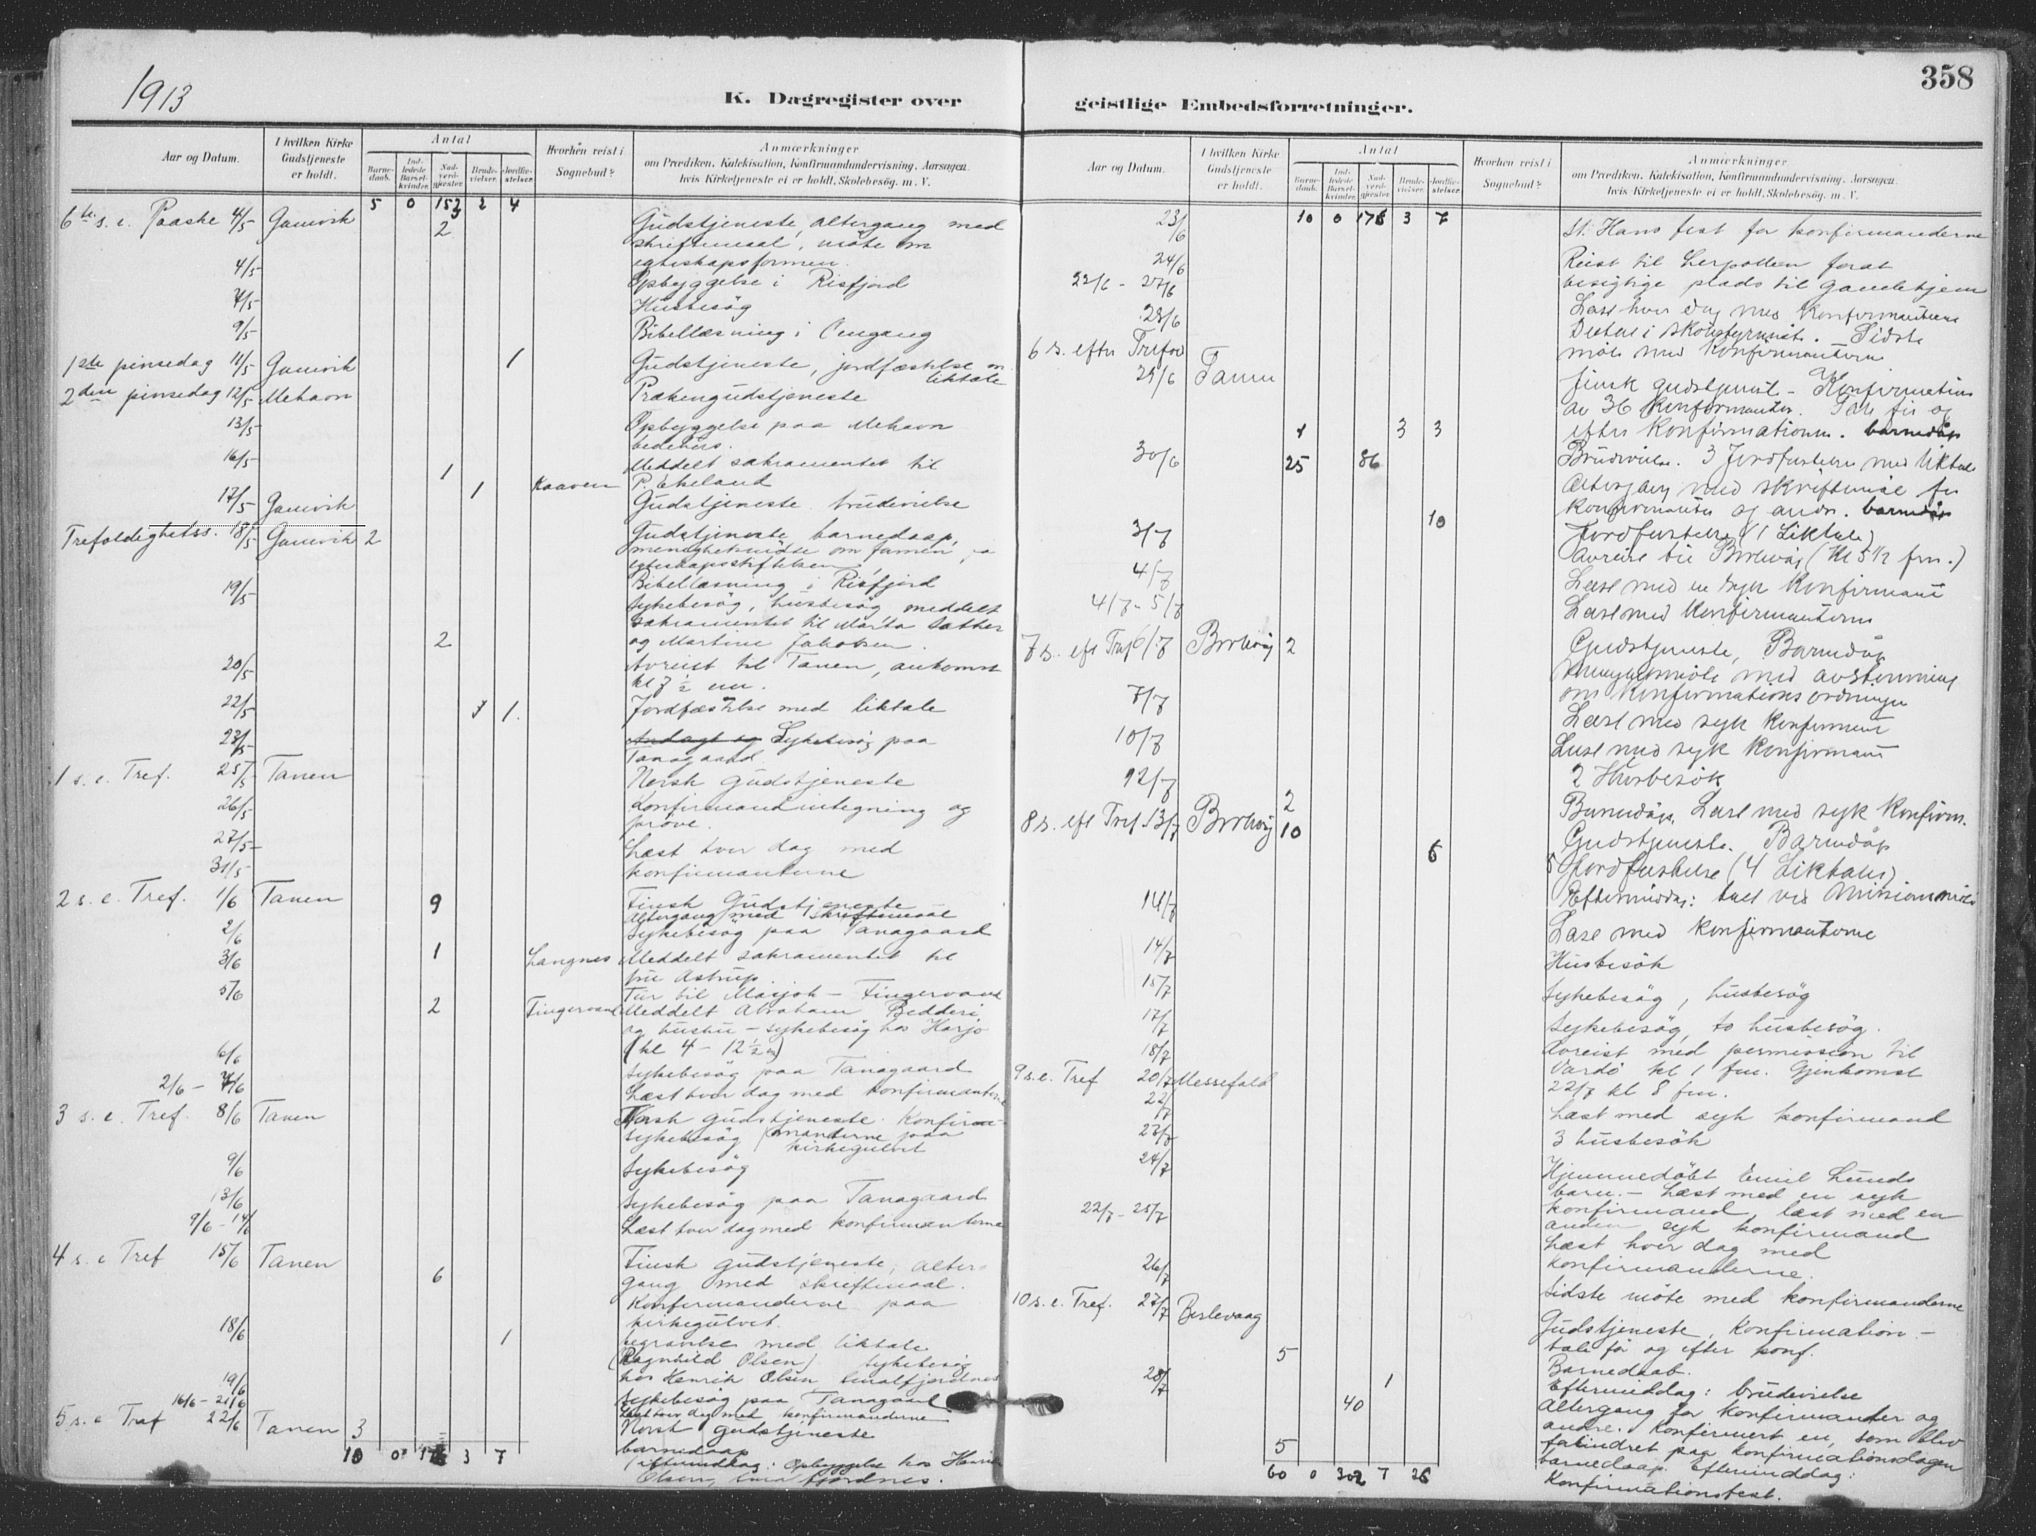 1913
K. Dagregister over
Aar og Datum.
I hvilken Kirke Gudstjeneste er holdt.
Antal
Barne-daab.
Ind-ledede Barsel-kvinder.
Nad-verd-gjester.
Brude-vielser.
Jordfæ-stelser.
Hvorhen reist i Sognebud?
Anmærkninger
om Prædiken, Katekisation, Konfirmandundervisning, Aarsagen
hvis Kirketjeneste ei er holdt, Skolebesøg. m. V.
5 0 2 4
6te s. e. Paaske 4/5 Gamvik 2 Gudstjeneste, altergang med
skriftemaal, møte om
egteskapsformen.
4/5 Opbyggelse i Risfjord
7/5 Husbesøg
9/5 Bibellæsning i Omgang
1ste pinsedag 11/5 Gamvik 1 Gudstjeneste, jordfæstelse m
liktale
2den pinsedag 12/5 Mehavn Prækengudstjeneste
13/5 Opbyggelse paa Mehavn
bedehus.
16/5 1 Kaaven Meddelt sakramentet til
P. Ekeland
17/5 Gamvik 1 Gudstjeneste brudevielse
Trefoldighetss. 18/5 Gamvik 2 Gudstjeneste barnedaap,
menighetsmøte om
egteskapsstiftelsen
Bibellæsning i Risfjord
19/5 Sykebesøg, husbesøg, meddelt
sakramentet til Marta
2 og Martine Jakobsen.
20/5 Avreist til Tanen, ankomst
kl 7 1/2 em.
22/5 1 Jordfæstelse med liktale
23/5 Andagt og Sykebesøg paa
Tanagaard
1 s. e. Tref. 25/5 Tanen Norsk gudstjeneste
26/5 Konfirmandindtegning og
prøve.
27/5 Læst hver dag med
31/5 konfirmanterne
2 s. e. Tref. 1/6 Tanen 9 Finsk Gudstjeneste
Altergang med skriftemaal
2/6 Sykebesøg paa Tanagaard
3/6 1 Langnes Meddelt sakramentet til
fru Astrup
5/6 Tur til Masjok - Fingervand
2 Fingervand Meddelt Abraham Bedderi
og hustru - sykebesøg hos Harjo
(kl 4 - 12 1/2)
6/6 Sykebesøg paa Tanagaard
2/6 - 7/6 Læst hver dag med konfirmanterne
3 s. e. Tref. 8/6 Tanen Norsk gudstjeneste. Konfirm-
Sykebesøg (manderne paa
kirkegulvet
9/6 Sykebesøg
13/6 Sykebesøg paa Tanagaard
9/6 - 14/6 Læst hver dag med konfirmanterne
4 s. e Tref 15/6 Tanen Finsk gudstjeneste, alter-
6 gang med skriftemaal.
Konfirmanderne paa
kirkegulvet.
18/6 1 begravelse med liktale
(Ragnhild Olsen) Sykebesøg
19/6 hos Henrik Olsen Smalfjordnes
Sykebesøg paa Tanagaard
16/6 - 21/6 Læst hver dag med konfirmanderne
5 s. e Tref 22/6 Tanen 3 Norsk gudstjeneste
barnedaap
eftermiddag: Opbyggelse hos Henrik
Olsen, Smalfjordnes.
10 0 3 7
358
geistlige Embedsforretninger.
Aar og Datum.
I hvilken Kirke Gudstjeneste er holdt.
Antal
Barne-daab.
Ind-ledede Barsel-kvinder.
Nad-verd-gjester.
Brude-vielser.
Jordfæ-stelser.
Hvorhen reist i Sognebud?
Anmærkninger
om Prædiken, Katekisation, Konfirmandundervisning, Aarsagen
hvis Kirketjeneste ei er holdt, Skolebesøg. m. V.
10 0 3 7
23/6 St. Hans fest for konfirmanderne
24/6 Reist til Lerpollen forat
besigtige plads til Gamlehjem
22/6 - 27/6 Læst hver dag med Konfirmanterne
28/6 Deltat i skolestyremøte. Sidste
møte med Konfirmanterne
6 s. efter Trefol 29/6 Tanen Finsk gudstjeneste - Konfirmation
av 36 Konfirmanter. Tale før og
1 3 3 efter Konfirmationen. barnedåp
30/6 25 86 Brudevielse. 3 Jordfæstelser med liktale
Altergang med skriftemål for
Konfirmanter og andre. barnedåp
10 Jordfæstelse (1 Liktale)
3/7 Avreise til Berlevåg (Kl 5 1/2 fm.)
4/7 Læse med en syk Konfirmant
4/7 - 5/7 Læse med Konfirmanterne
7 s. eft Tref 6/7 Berlevåg 2 Gudstjeneste, Barnedåp
Menighetsmøte med avstemning
om Konfirmationsordningen
7/7 Læse med syk Konfirmant
10/7 Læse med syk Konfirmant
12/7 2 Husbesøk
2 Barnedåp. Læse med syk Konfirm.
8 s. eft Tref 13/7 Berlevåg 10 Gudstjeneste. Barnedåp
6 Jordfæstelse (4 Liktaler)
Eftermiddag: talt ved Missionsmøte
14/7 Læse med Konfirmanterne
14/7 Husbesøk
15/7 Sykebesøg, husbesøg
17/7 Sykebesøg, to husbesøg.
18/7 Avreist med permission til
9 s. e. Tref 20/7 Messefald Vardø kl 1 fm. Gjenkomst
22/7 22/7 kl 8 fm.
Læst med syk konfirmand
23/7 3 husbesøk
24/7 Hjemmedøbt Emil Lunds
barn. - Læst med en syk
konfirmand, læst med en
anden syk konfirmand
22/7 - 25/7 Læst hver dag med
konfirmanderne.
26/7 Sidste møte med konfirmanderne
10 s. e. Tref. 27/7 Berlevaag Gudstjeneste, konfirmation -
tale før og efter konf.
5 Barnedaab.
28/7 1 Eftermiddag: brudevielse
40 Altergang for konfirmander og
andre. Konfirmert en, som blev
forhindret paa konfirmationsdagen
5 barnedaap. Eftermiddag:
Konfirmationsfest.
60 0 302 7 26